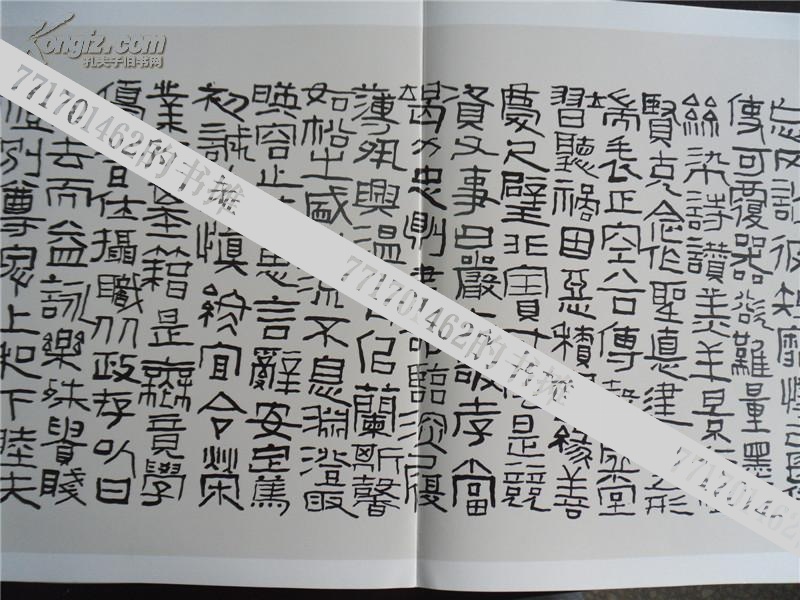 忘罔談彼短靡恃己長
使可覆器欲難量墨
絲染詩讚羔羊景行維
賢克念作聖德建立形
端表正空谷傳聲虛堂
習聽禍因惡積緣善
慶尺璧非寶是競
資父事君曰嚴敬孝當
竭力忠則命臨深履
薄夙興溫似蘭斯馨
如松之盛流不息淵澄取
暎容止思言辭安定篤
初誠慎終宜令榮
業基籍甚無竟學
優仕攝職從政存以甘
去而益詠樂殊貴賤
禮別尊卑上和下睦夫
Kongfz.com
孔夫子旧书网
771701462的书摊
771701462的书摊
771701462的书摊